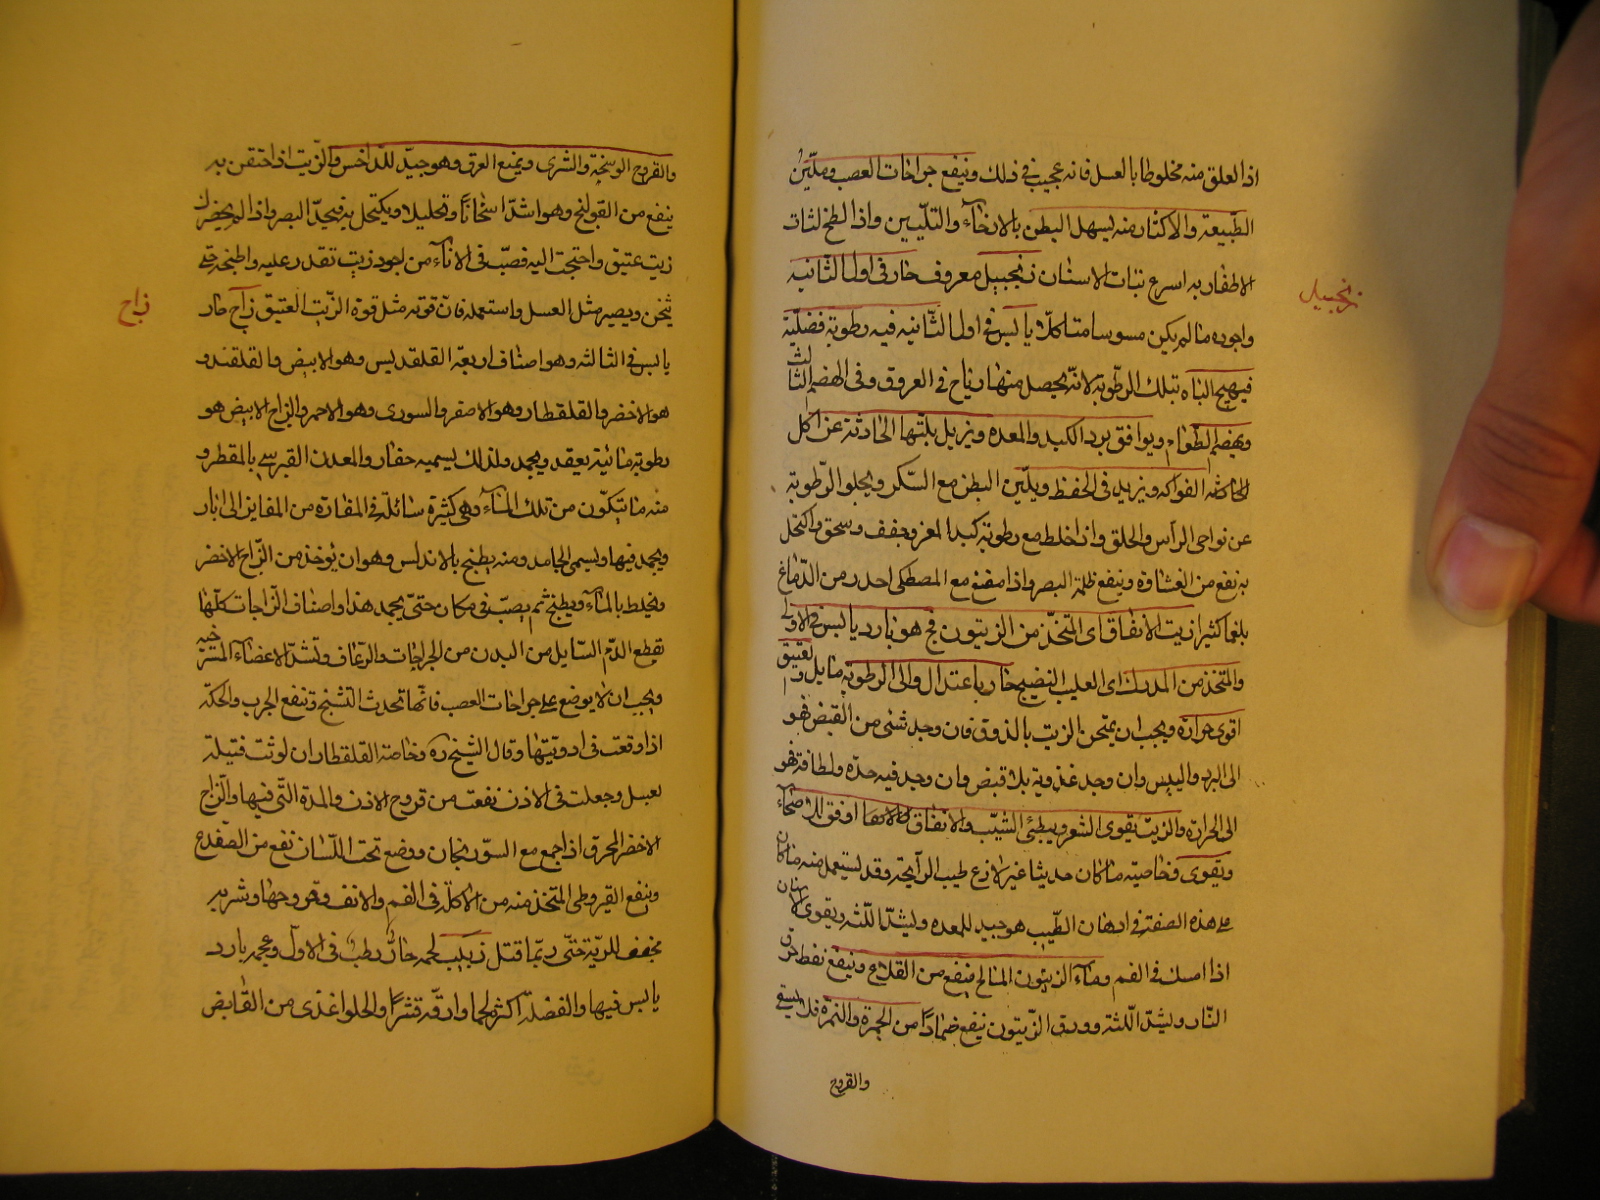 اذا لعلق منه مخلوطا بالعسل فانه عجيب فى ذلك وينفع جراحات العصب ويليّن
الطّبيعة والاكثار منه يسهل البطن بالارخآء والتليين واذا الطخ لثات
الاطفار به اسرع نبات الاسنان زنجبيل معروف حار فى اول الثانية
زنجبيل
واجوده ما لم يكن مسوسا متاكلا يابس فى اول الثّانيه فيه رطوبة فضليّة
فيهيج الباه بتلك الرطوبة لانّه يحصل منها رياح فى العروق وفى الهضم الثالث
ويهضم الطعام ويوافق برد الكبد والمعده ويزيل بلّتها الحادثة عن اكل
الفواكه ويزيد فى الحفظ ويليّن البطن مع السّكر ويجلو الرّطوبة
عن نواحى الراس والحلق واذا خلط مع رطوبة كبد المعز وجفف وسحق واكتحل
به نفع من الغشاوة وينفع ظلمة البصر واذا مضغ مع المصطكى احدر من الدّماغ
بلغما كثيرا زيت الانفاق اى المتخذ من الزيتون فج هو بارد يابس فى الاولى
والمتخذ من المدرك اى العليب النضيج حار باعتدال والى الرطوبة مايل والعتيق
اقوى حرارة ويجب ان يمتحن الزيت بالذوق فان وجد شئ من القبض فهو
الى البرد واليبس وان وجد عذوبة بلا قبض وان وجد فيه حدّه ولطافة فهو
الى الحرارة والزيت يقوى الشعر ويبطئ الشيب والانفاق اوفق للاصحّآء
ويقوى وخاصيّه ما كان حديثا غير لاذع طيب الرآيحة وقد يستعمل منه ما كان
على هذه الصفة فى ادهان الطّيب هو جيد للمعده ويشدّ اللثه ويقوى الاسنان
اذا امسك فى الفم ومآء الزيتون المالح ينفع من القلاع وينفع نفط حرق
النّار ويشدّ اللّثة وورق الزّيتون ينفع ضمادًا من الحمرة والنملة فلا يسعى
والقروح
والقروح الوسخة والشرى ويمنع العرق وهو جيّد للدّاخس والزّيت اذا احتقن به
ينفع من القولنج وهو اشدّ اسخانًا وتحليلا ويكتحل به فيحدّ البصر واذا لم يحضرك
زيت عتيق واحتجت اليه فصبّ فى الانآء من اجود زيت تقدر عليه واطبخه حتى
يثخن ويصير مثل العسل واستعمله فان قوته مثل قوة الزّيت العتيق زاج حار
زاج
يابس فى الثالثه وهو اصناف اربعّة القلقديس وهو الابيض والقلقند و
هو الاخضر والقلقطار وهو الاصفر والسورى وهو الاحمر والزاج الابيض هو
رطوبة مائية يعقد ويجمد ولذلك يسميه حفار والمعدن القبرسى بالمقطر و
منه ما يتكوّن من تلك المآء وهى كثيرة سائلة فى المغارة من المغاير الى ابار
ويجمد فيها ويسمى الجامد ومنه يطبخ بالاندلس وهو ان يوخذ من الزّاج الاخضر
ويخلط بالمآء ويطبخ ثم يصبّ فى مكان حتىّ يجمد هذا واصناف الزّاجات كلّها
تقطع الدّم السّايل من البدن من الجراحات والرّعاف وتشدّ الاعضآء المسترخيه
ويجب ان لا يوضع على جراحات العصب فانّها تحدث التشنج وتنفع الجرب والحكّة
اذا وقعت فى ادويتها وقال الشيخ ره وخاصة القلقطار ان لوثت فتيلة
بعسل وجعلت فى الاذن نفعت من قروح الاذن والمدة التّى فيها والزاج
الاخضر المحرق اذا جمع مع السّورنجان ووضع تحت اللّسان نفع من الضّفدع
وينفع القيروطى المتخذ منه من الاكلة فى الفم والانف وقروحها وشربه
مجفف للريّة حتّى ربمّا قتل زبيب لحمه حارّ رطب فى الاول وعجمه بارد
يابس فيها والفضله اكثره لحما وادقّه قشرًا والحلو اغذى من القابض